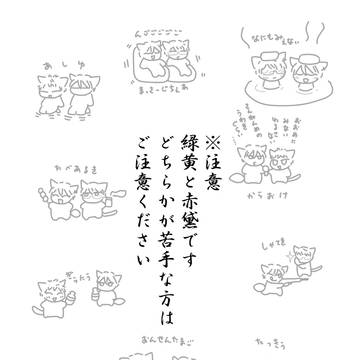 ※注意
緑黄と赤黛です
どちらかが苦手な方は
ご注意ください
なにもみえない
んごごごごご
まっさーじちぇあ
あしゆ
からおけ
たべあるき
しゃてき
ぎゅうにゅう
おんせんたまご
たっきゅう